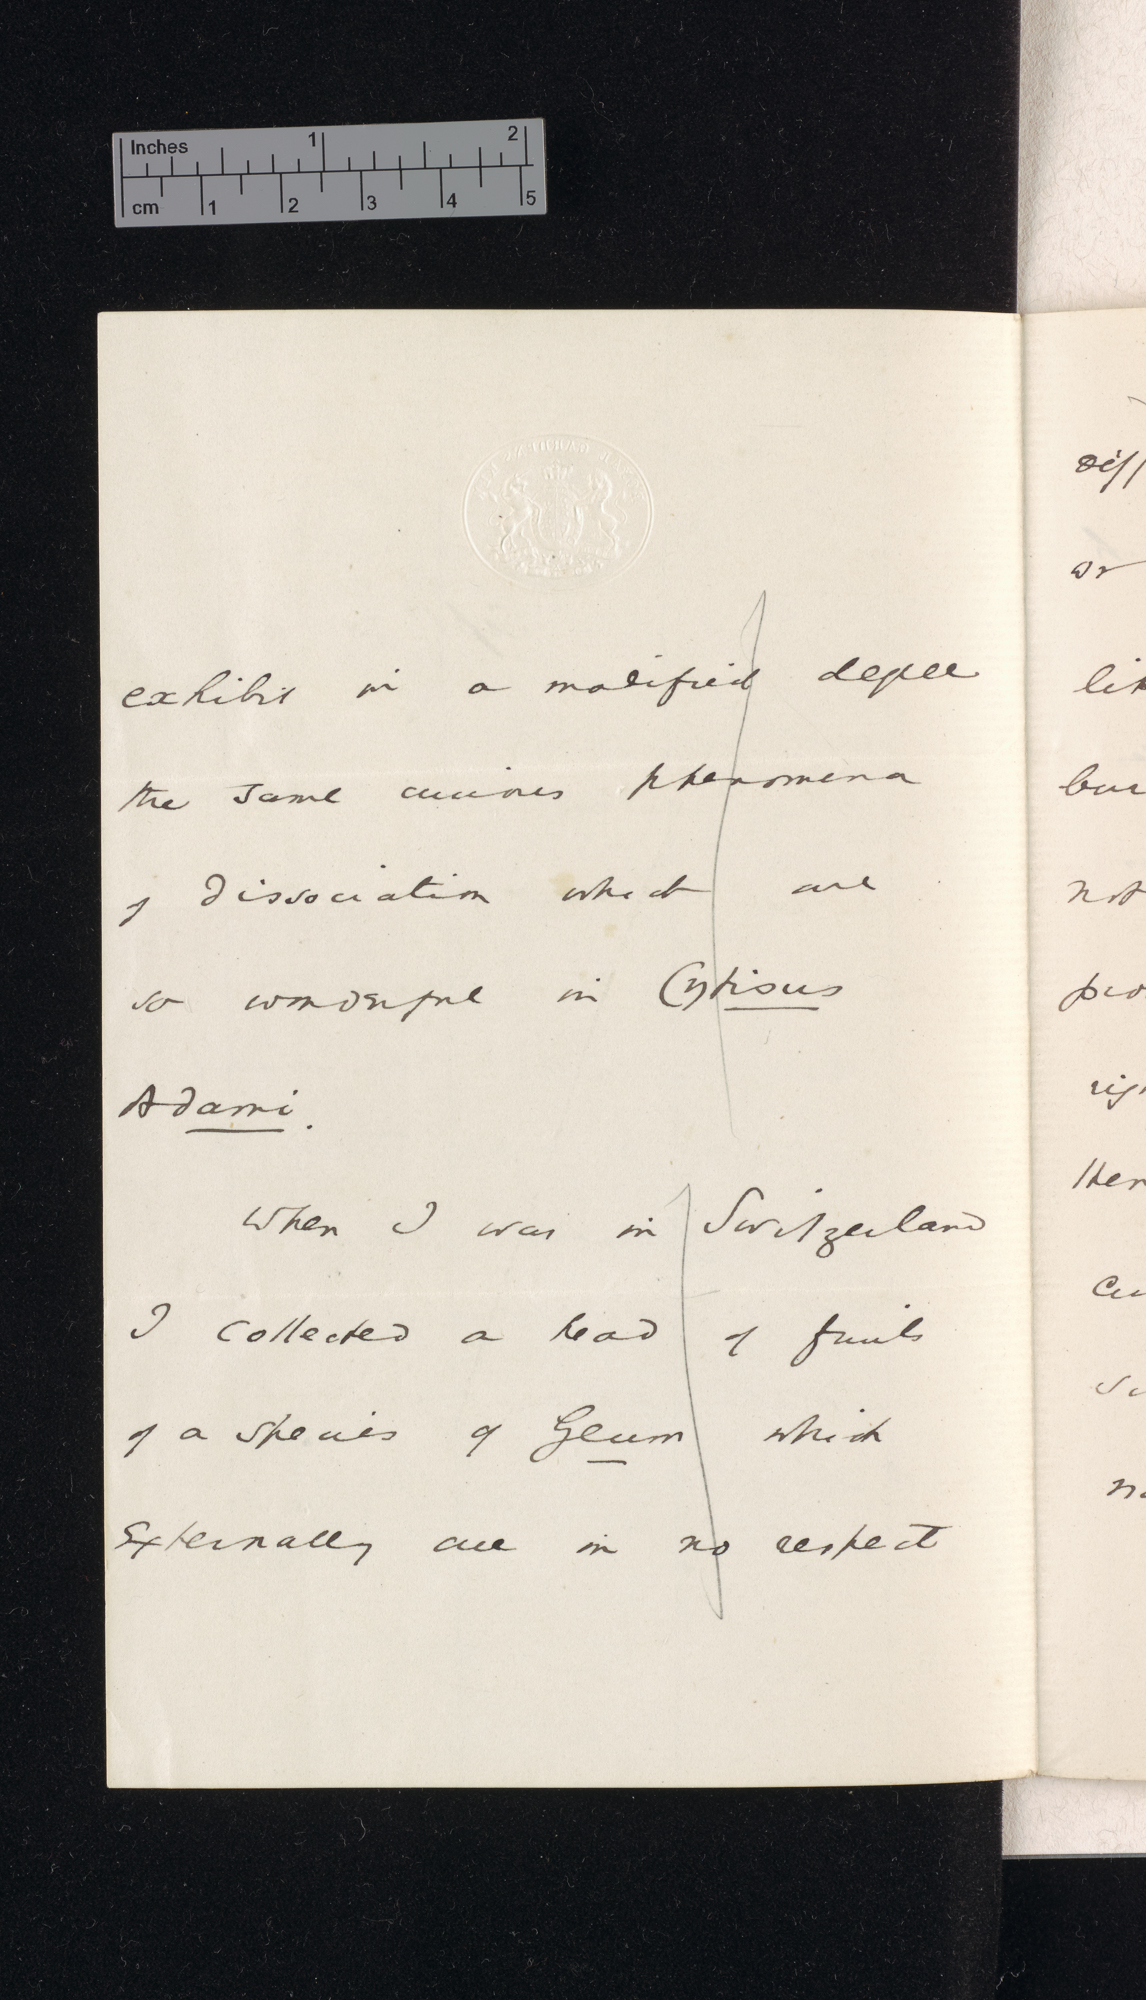 Inches 1 2
cm 1 2 3 4 5
exhibit in a modified degree
the same curious phenomena
of dissociation which are
so wonderful in Cytisus
Adami.
When I was in Switzerland
I collected a head of fruits
of a species of Geum which
externally are in no respect
diff
or
lik
but
not
pro
righ
Her
cu
su
no